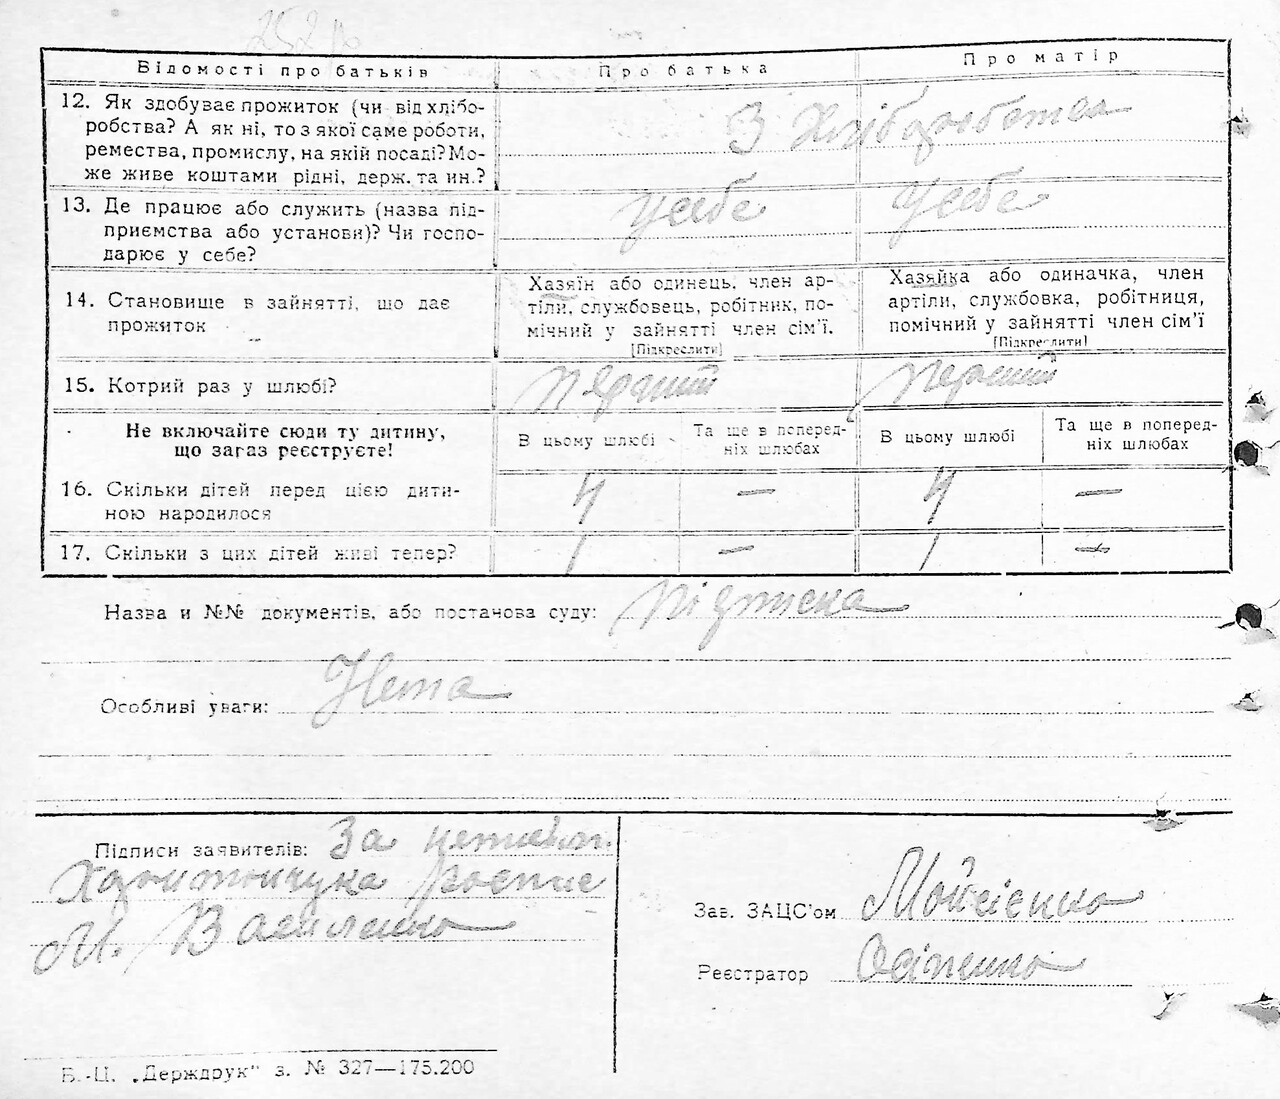 Відомості про батьків Про батька Про матір
12. Як здобуває прожиток (чи від хлібо-
робства? А як ні, то з якої саме роботи,
ремества, промислу, на якій посаді? Мо-
же живе коштами рідні, держ. та ин.?
З хліборобства
13. Де працює або служить (назва під-
приємства або установи)? Чи госпо-
дарює у себе?
У себе У себе
14. Становище в зайнятті, що дає
прожиток
Хазяїн або одинець, член ар-
тіли, службовець, робітник, по-
мічний у зайнятті член сім'ї.
[Підкреслити]
Хазяйка або одиначка, член
артіли, службовка, робітниця,
помічний у зайнятті член сім'ї
[Підкреслити]
15. Котрий раз у шлюбі? Перший Перший
Не включайте сюди ту дитину,
що зараз реєструєте!
В цьому шлюбі Та ще в поперед-
ніх шлюбах
В цьому шлюбі Та ще в поперед-
ніх шлюбах
16. Скільки дітей перед цією дити-
ною народилося
4 — 4 —
17. Скільки з цих дітей живі тепер? 1 — 1 —
Назва и №№ документів, або постанова суду: Підписка
Особливі уваги: Нема
Підписи заявителів: За
Харитончука
М. Василенко
Зав. ЗАЦС'ом Мойсієнко
Реєстратор Осіпенко
Б.-Ц. „Держдрук" з. № 327—175.200